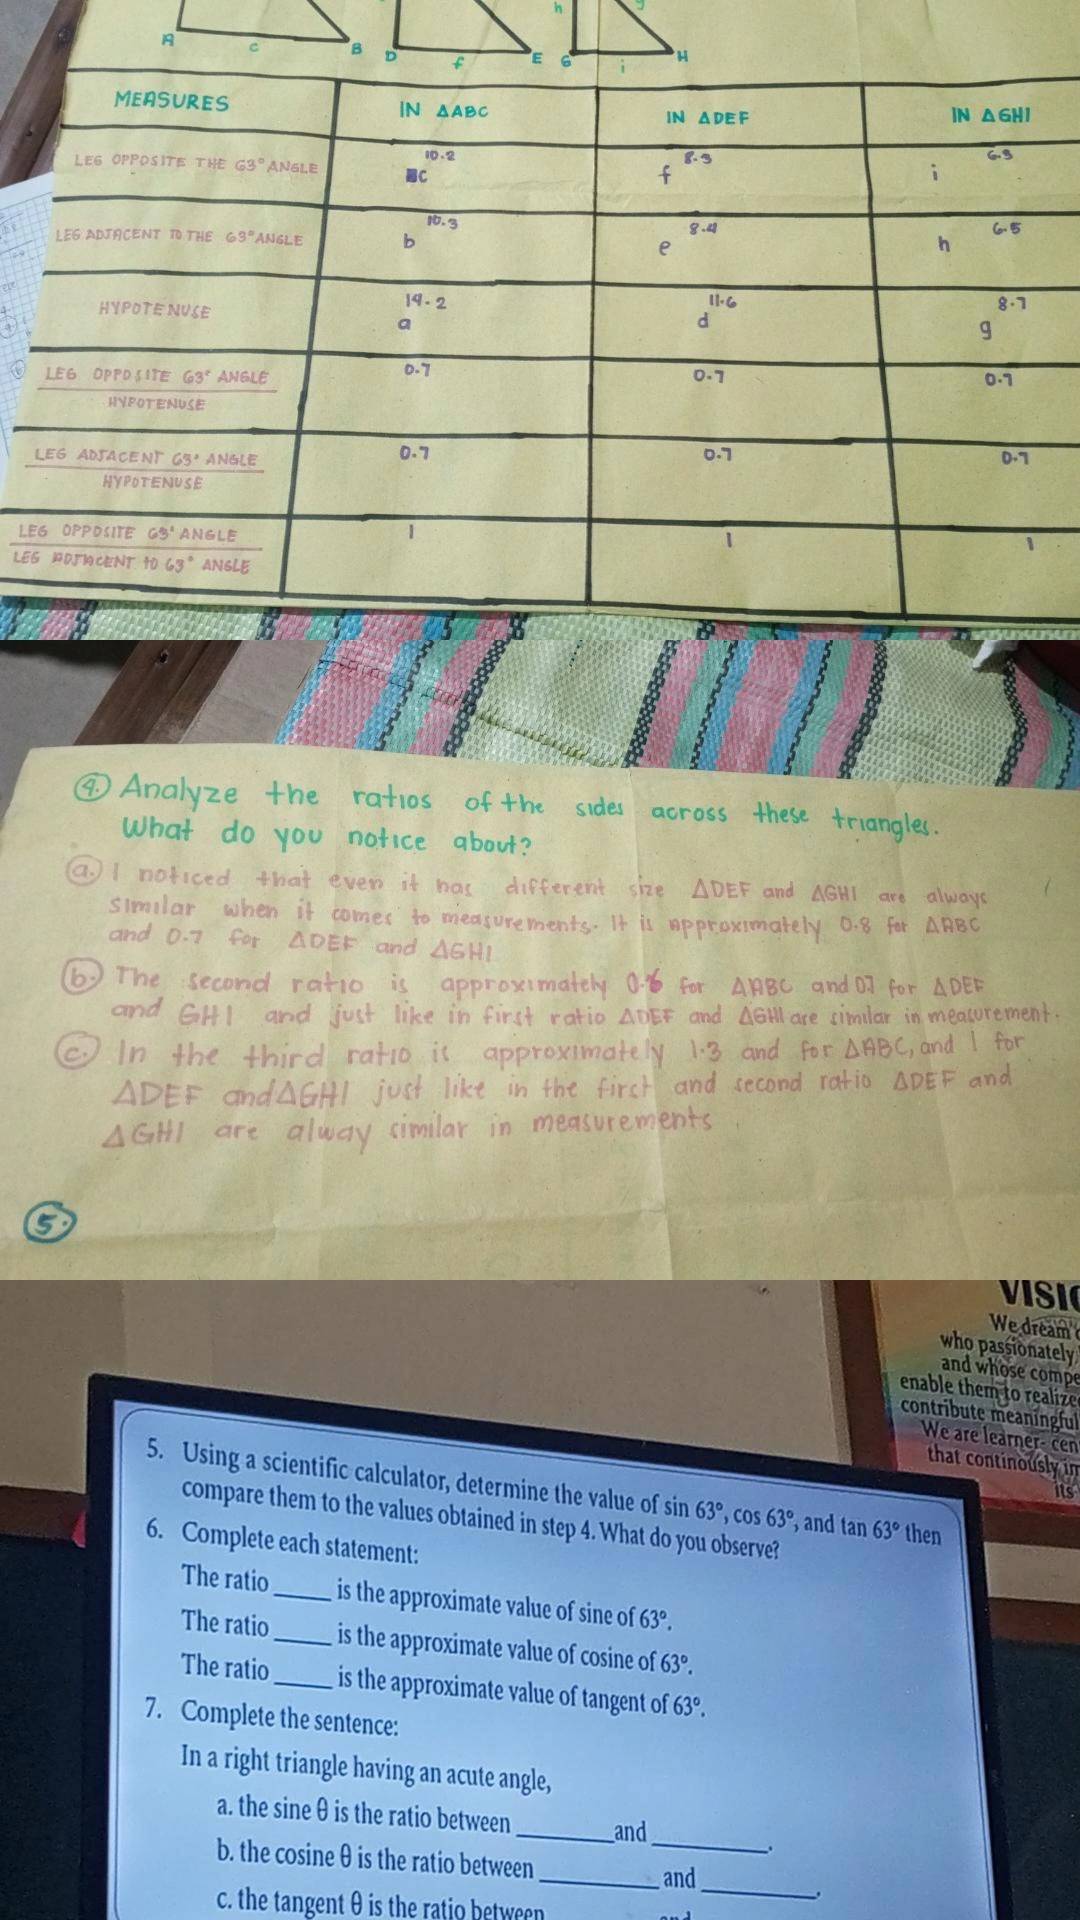 h g
A c B D f E G i H
MEASURES IN ΔABC IN ΔDEF IN ΔGHI
LEG OPPOSITE THE 63° ANGLE 10.2 c 8.3 f 6.3 i
LEG ADJACENT TO THE 63° ANGLE 10.3 b 8.4 e 6.5 h
HYPOTENUSE 14.2 a 11.6 d 8.7 g
LEG OPPOSITE 63° ANGLE 0.7 0.7 0.7
HYPOTENUSE
LEG ADJACENT 63° ANGLE 0.7 0.7 0.7
HYPOTENUSE
LEG OPPOSITE 63° ANGLE 1 1 1
LEG ADJACENT to 63° ANGLE
4. Analyze the ratios of the sides across these triangles.
What do you notice about?
a. I noticed that even it has different size ΔDEF and ΔGHI are always
similar when it comes to measurements. It is approximately 0.8 for ΔABC
and 0.7 for ΔDEF and ΔGHI
b. The second ratio is approximately 0.6 for ΔABC and 0.7 for ΔDEF
and GHI and just like in first ratio ΔDEF and ΔGHI are similar in measurement.
c. In the third ratio is approximately 1.3 and for ΔABC, and 1 for
ΔDEF and ΔGHI just like in the first and second ratio ΔDEF and
ΔGHI are alway similar in measurements
5.
VISIO
We dream
who passionately
and whose compe
enable them to realize
contribute meaningful
We are learner- cen
that continously im
its
5. Using a scientific calculator, determine the value of sin 63°, cos 63°, and tan 63° then
compare them to the values obtained in step 4. What do you observe?
6. Complete each statement:
The ratio _____ is the approximate value of sine of 63°.
The ratio _____ is the approximate value of cosine of 63°.
The ratio _____ is the approximate value of tangent of 63°.
7. Complete the sentence:
In a right triangle having an acute angle,
a. the sine θ is the ratio between ________ and ________.
b. the cosine θ is the ratio between ________ and ________.
c. the tangent θ is the ratio between and